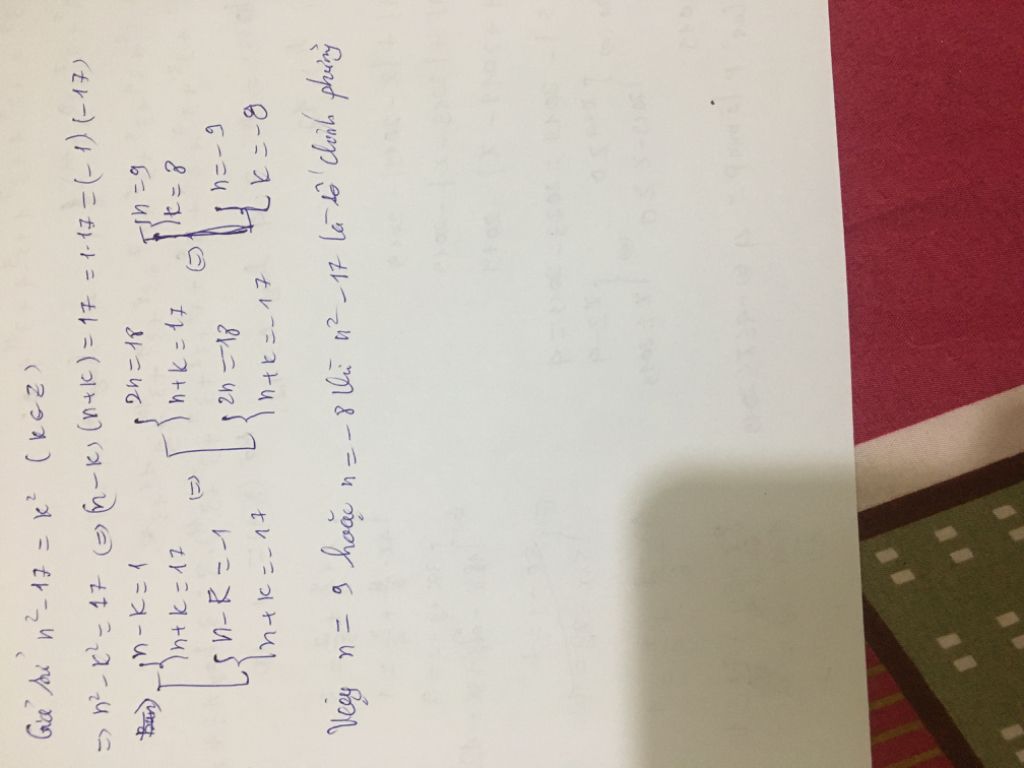 Giả sử n² - 17 = k² (k ∈ Z)
=> n² - k² = 17 <=> (n - k)(n + k) = 17 = 1·17 = (-1)(-17)
[ { n - k = 1 [ { 2n = 18 [ { n = 9
n + k = 17 <=> n + k = 17 <=> k = 8
{ n - k = -1 { 2n = 18 { n = -9
n + k = -17 n + k = -17 k = -8
Vậy n = 9 hoặc n = -8 thì n² - 17 là số chính phương